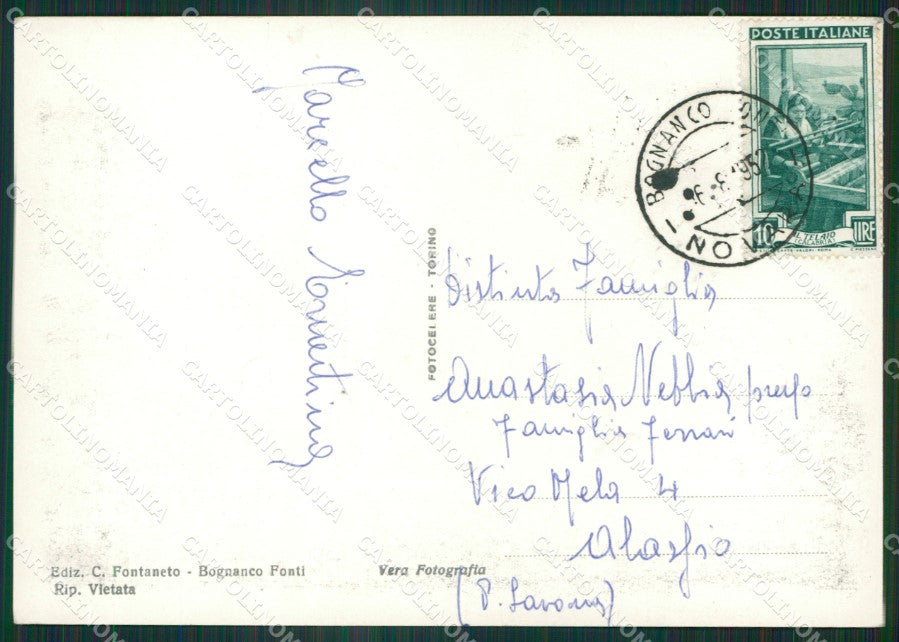 POSTE ITALIANE
10 LIRE
IL TELAIO
BOGNANCO FONTI
6-8-1952
NOVARA
Marcello Ernestina
FOTOCELERE - TORINO
Distinta Famiglia
Anastasia Nebbia presso
Famiglia Ferrari
Vico Mela 4
Alassio
(P. Savona)
Ediz. C. Fontaneto - Bognanco Fonti
Rip. Vietata
Vera Fotografia
CARTOLINOMANIA